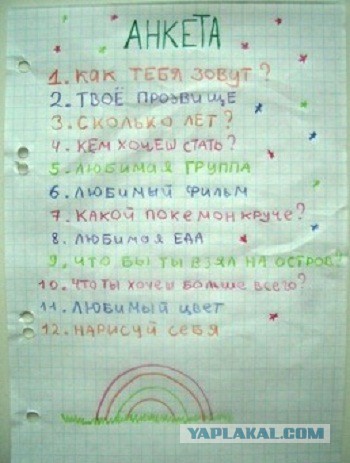 АНКЕТА
1. КАК ТЕБЯ ЗОВУТ?
2. ТВОЁ ПРОЗВИЩЕ
3. СКОЛЬКО ЛЕТ?
4. КЕМ ХОЧЕШ СТАТЬ?
5. ЛЮБИМАЯ ГРУППА
6. ЛЮБИМЫЙ ФИЛЬМ
7. КАКОЙ ПОКЕМОН КРУЧЕ?
8. ЛЮБИМАЯ ЕДА
9. ЧТО БЫ ТЫ ВЗЯЛ НА ОСТРОВ?
10. ЧТО ТЫ ХОЧЕШ БОЛЬШЕ ВСЕГО?
11. ЛЮБИМЫЙ ЦВЕТ
12. НАРИСУЙ СЕБЯ
YAPLAKAL.COM